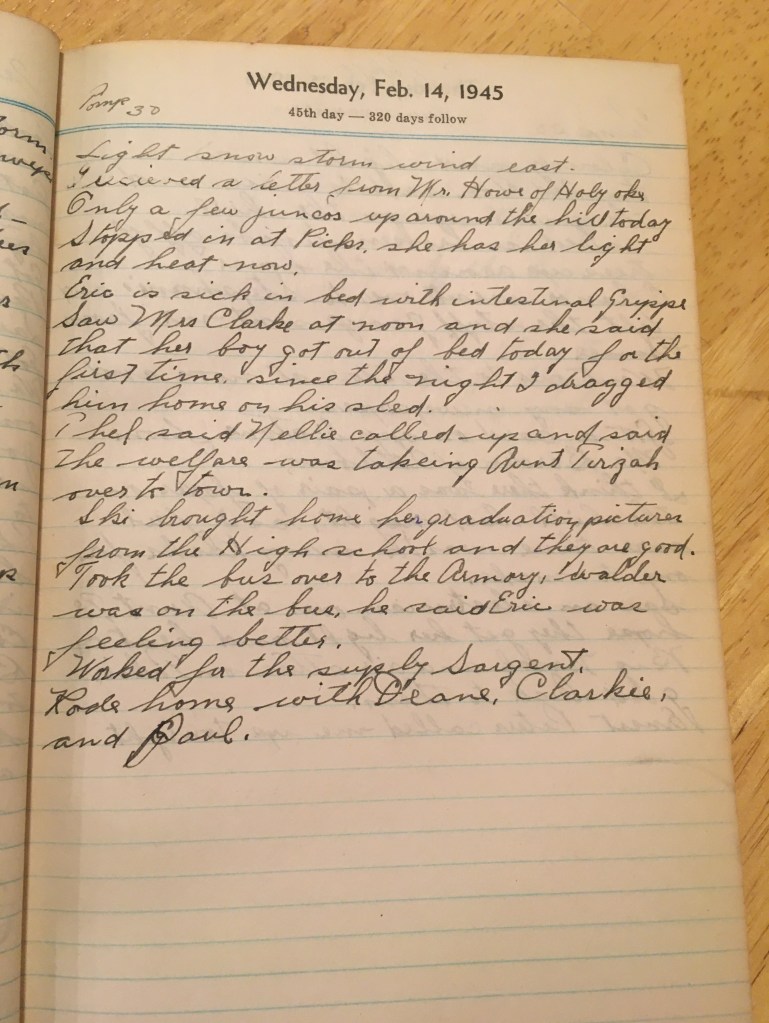 Wednesday, Feb. 14, 1945
45th day — 320 days follow
30
Light snow storm wind east.
I recieved a letter from Mr. Howe of Holyoke
Only a few juncos up around the hill today
Stopped in at Picks, she has her light
and heat now.
Eric is sick in bed with intestinal Grippe
Saw Mrs Clarke at noon and she said
that her boy got out of bed today for the
first time, since the night I dragged
him home on his sled.
Phel said Nellie called up and said
the welfare was takeing Aunt Tirzah
over to town.
Ski brought home her graduation pictures
from the High school and they are good.
Took the bus over to the Armory, Walder
was on the bus, he said Eric was
feeling better.
Worked for the supply Sargent.
Rode home with Deane, Clarkie,
and Paul.